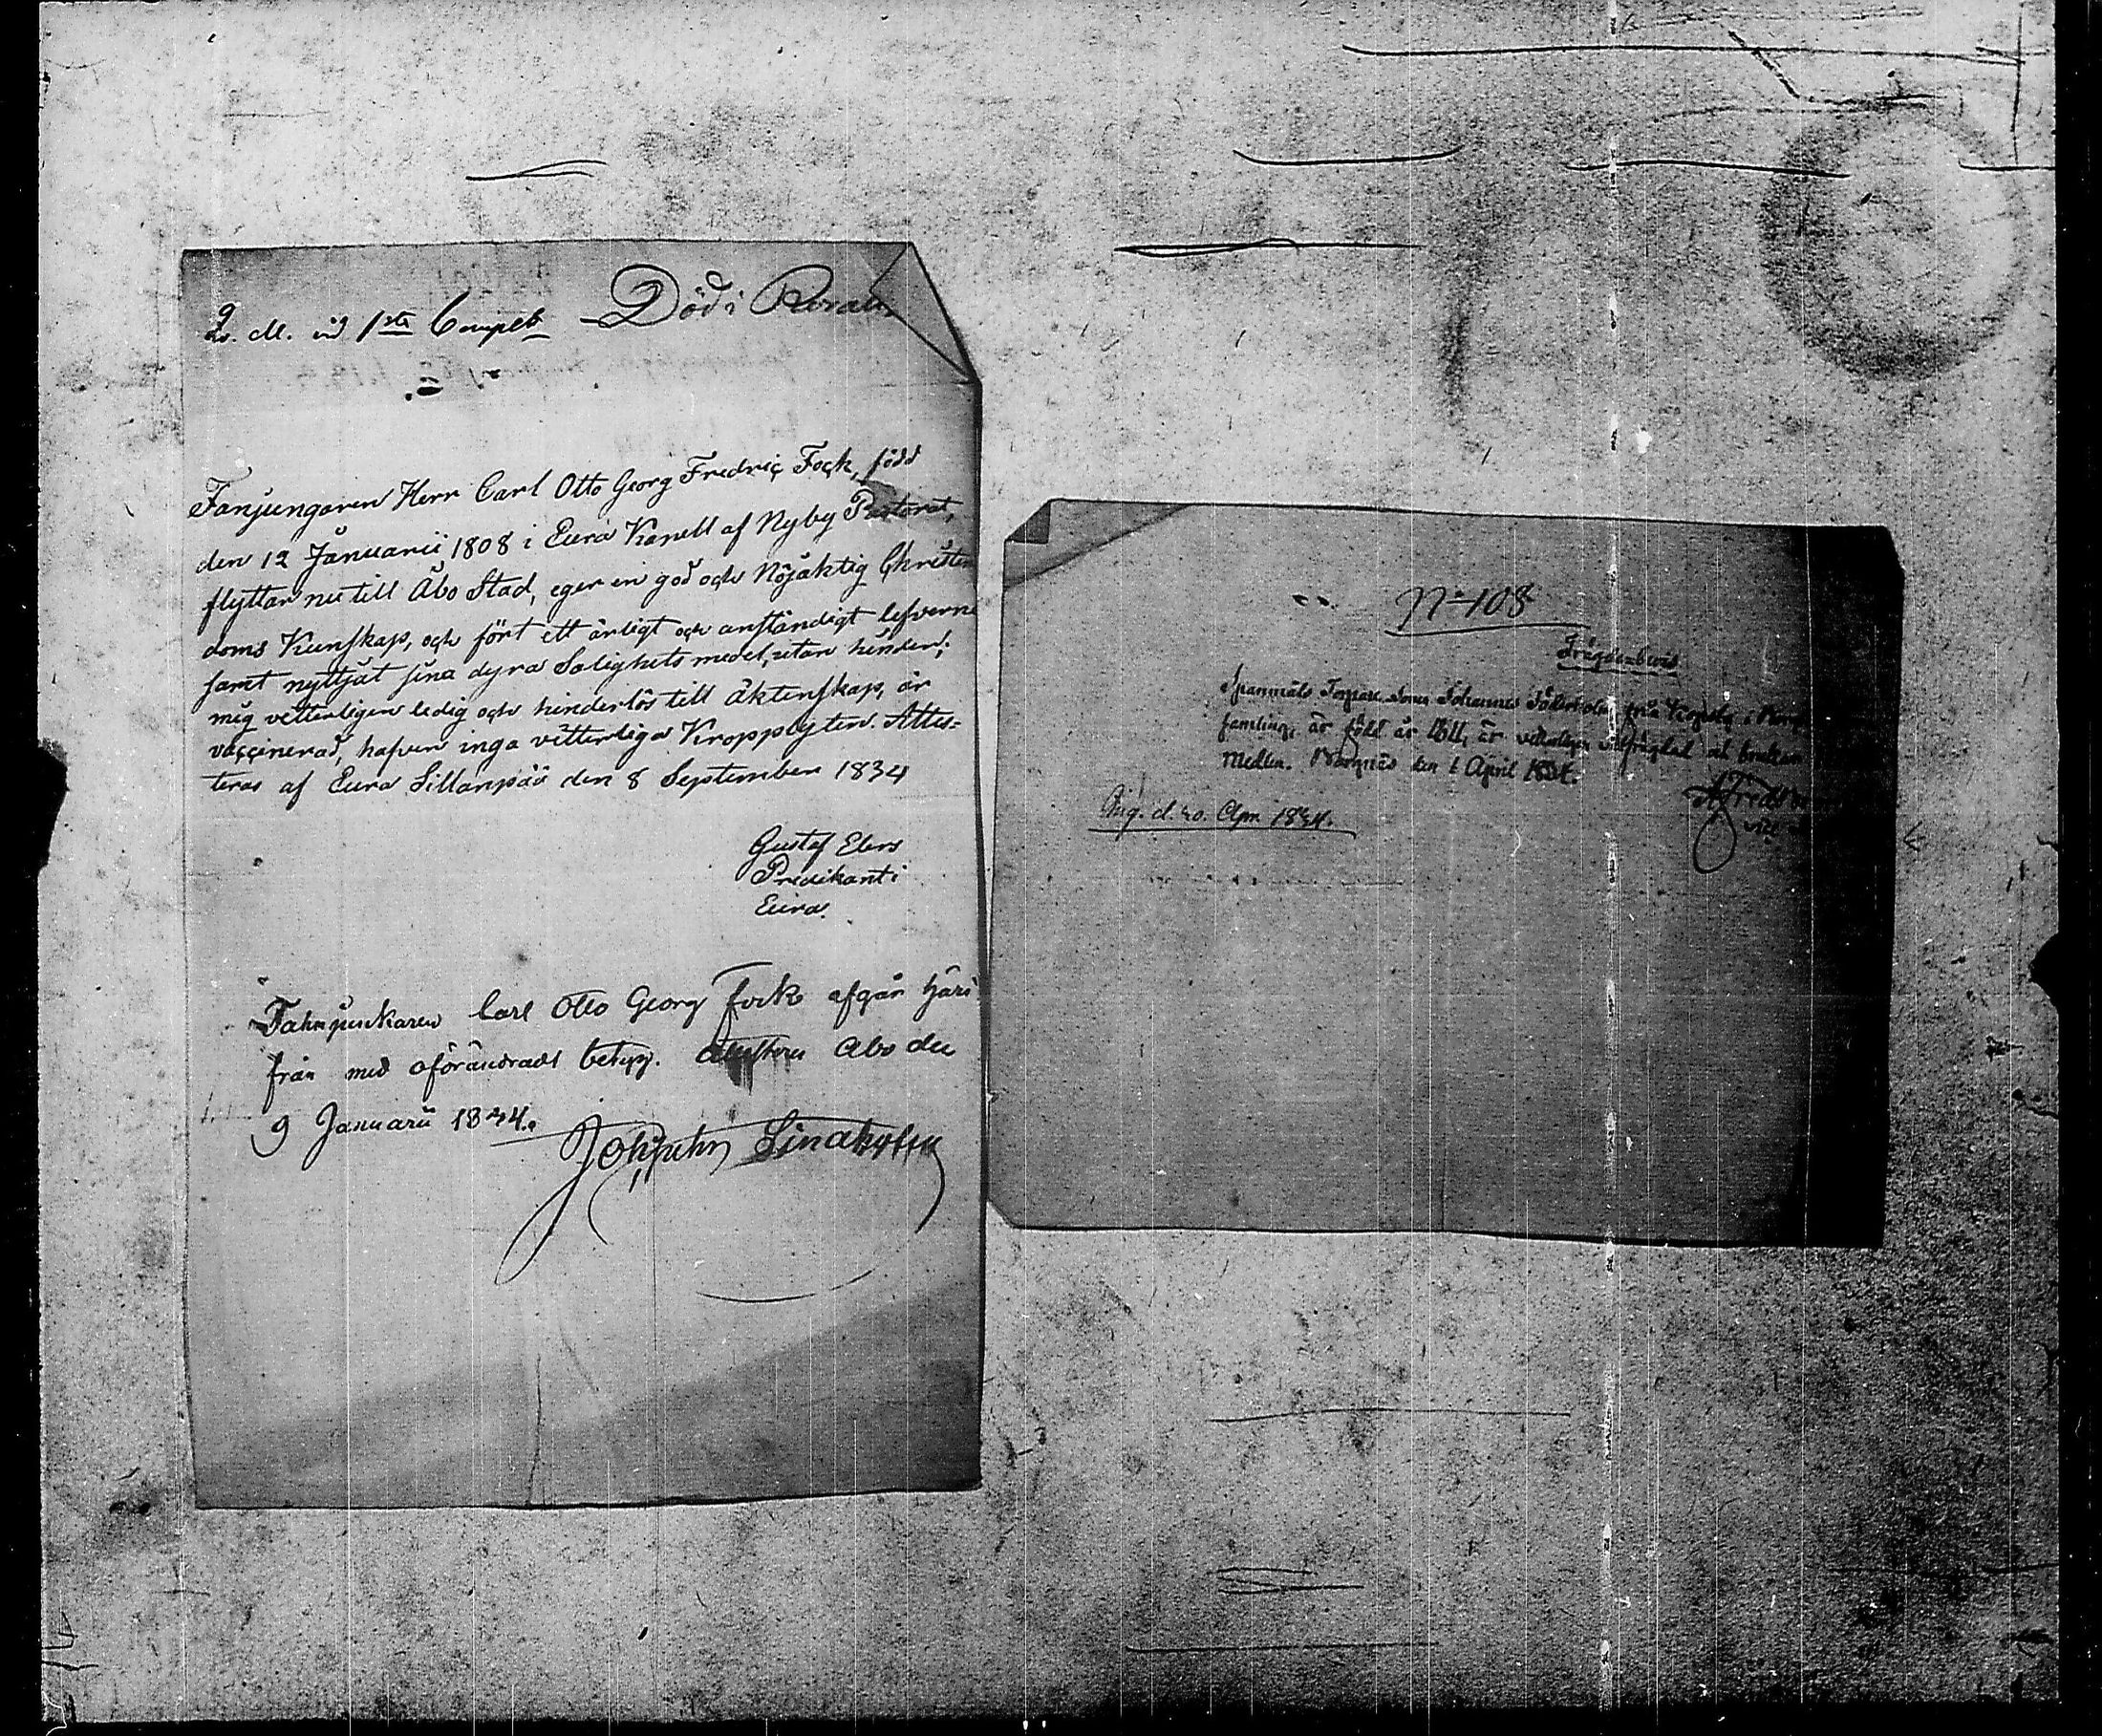 L. M. vid 1sta Compt Död i Reval
Fanjungaren Herr Carl Otto Georg Fredric Fock, född
den 12 Januarii 1808 i Eura Kapell af Nyby Pastorat,
flyttar nu till Åbo Stad, eger en god och Nöjaktig Christen
doms Kunskap, och fört ett ärligt och anständigt lefverne
samt nyttjat sina dyra Salighets medel, utan hinder;
mig vetterligen ledig och hinderlös till äktenskap, är
vaccinerad, hafver inga vetterliga Kropplyten. Attes=
teras af Eura Sillanpää den 8 September 1834
Gustaf Elers
Predikant i
Eura.
Fahnjunkaren Carl Otto Georg Fock afgår häri
från med oförändradt betyg. Åbo den
9 Januarii 1844.
Joh Lindholm
No 108
Frägdebevis
Johannes Söderholm från i
samling, är född år 1811, är vetterligen välfrägdad at
Medlen. den 1 April 1834.
Ing. d. 20. Apr. 1834.